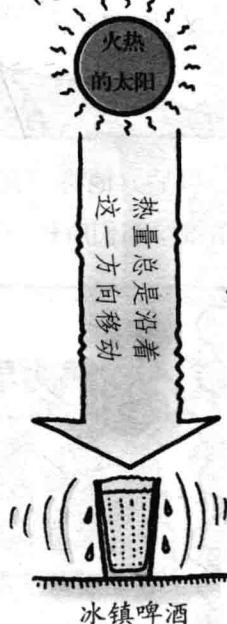 火热
的太阳
热量总是沿着
这一方向移动
冰镇啤酒